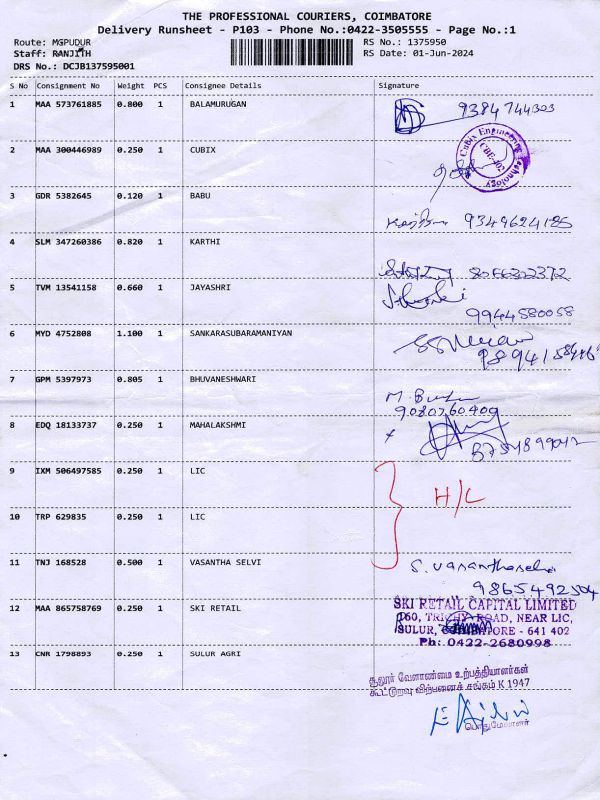 THE PROFESSIONAL COURIERS, COIMBATORE
Delivery Runsheet - P103 - Phone No.:0422-3505555 - Page No.:1
Route: MGPUDUR
RS No.: 1375950
Staff: RANJITH
RS Date: 01-Jun-2024
DRS No.: DCJB137595001
S No Consignment No Weight PCS Consignee Details Signature
1 MAA 573761885 0.800 1 BALAMURUGAN 9384744303
2 MAA 300446989 0.250 1 CUBIX
Cubix Engineering Technology
CBE-402
3 GDR 5382645 0.120 1 BABU
9349624185
4 SLM 347260386 0.820 1 KARTHI
5 TVM 13541158 0.660 1 JAYASHRI
9944580058
6 MYD 4752808 1.100 1 SANKARASUBARAMANIYAN
7 GPM 5397973 0.805 1 BHUVANESHWARI
9080760409
8 EDQ 18133737 0.250 1 MAHALAKSHMI
9 IXM 506497585 0.250 1 LIC
H/L
10 TRP 629835 0.250 1 LIC
11 TNJ 168528 0.500 1 VASANTHA SELVI
S. Vasanthaselvi
9865492304
12 MAA 865758769 0.250 1 SKI RETAIL
SKI RETAIL CAPITAL LIMITED
160, TRICHY ROAD, NEAR LIC,
SULUR, COIMBATORE - 641 402
Ph: 0422-2680998
13 CNR 1798893 0.250 1 SULUR AGRI
சூலூர் வேளாண்மை உற்பத்தியாளர்கள்
கூட்டுறவு விற்பனைச் சங்கம் K 1947
பொதுமேலாளர்